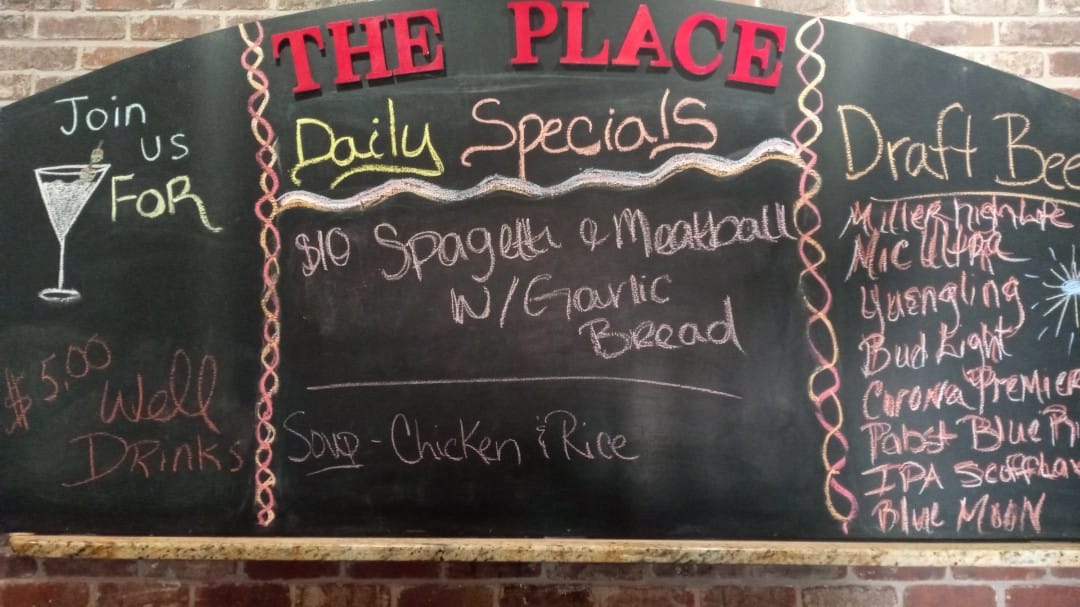 THE PLACE
Join
US
FOR
$5.00
Well
Drinks
Daily Specials
$10 Spagetti & Meatball
W/Garlic
Bread
Soup - Chicken & Rice
Draft Bee
Miller high Life
Mic Ultra
Yuengling
Bud Light
Corona Premier
Pabst Blue Ri
IPA Scofflaw
Blue Moon